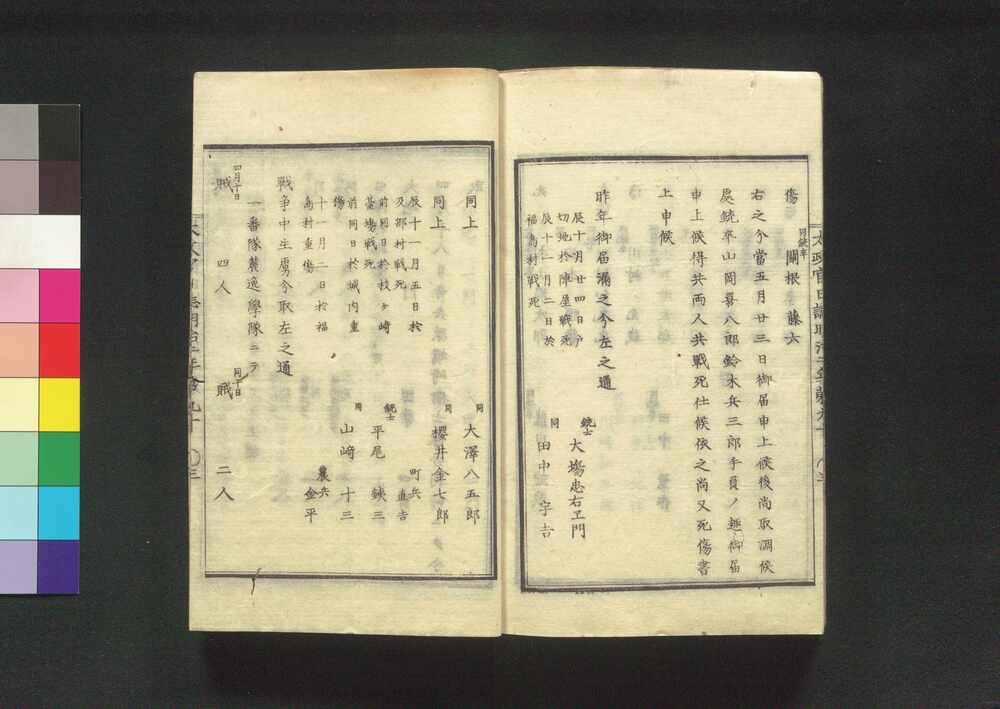 傷 同銃卒 關根 藤六
右之分當五月廿三日御届申上候後尚取調候
處銃卒山岡喜八郎鈴木兵三郎手負ノ趣御届
申上候得共両人共戦死仕候依之尚又死傷書
上申候
昨年御届漏之分左之通
辰十一月廿四日於
切地於陣屋戦死
銃士 大塲忠右ヱ門
辰十一月二日於
福嶌村戦死
同 田中 宇吉
同上
同 大澤八五郎
同上
同 櫻井金七郎
辰十一月五日於
及部村戦死
町兵 直吉
前同日於枝ヶ崎
臺場戦死
銃士 平尾 鋏三
前同日於城内重
傷
同 山﨑 十三
十一月二日於福
嶌村重傷
農兵 金平
戦争中生虜分取左之通
一番隊糵逸學隊ニテ
四月十日 賊 四人
同十日 賊 二人
太政官日誌明治二年